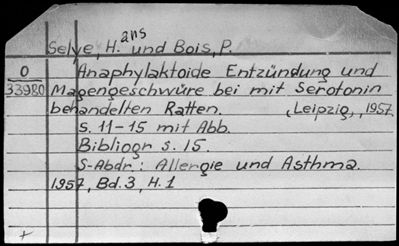 Selye, H.ans und Bois, P.
O Anaphylaktoide Entzündung und
33980 Magengeschwüre bei mit Serotonin
behandelten Ratten. (Leipzig,, 1957.
S. 11-15 mit Abb.
Bibliogr s. 15.
S-Abdr.: Allergie und Asthma.
1957, Bd. 3, H. 1
+